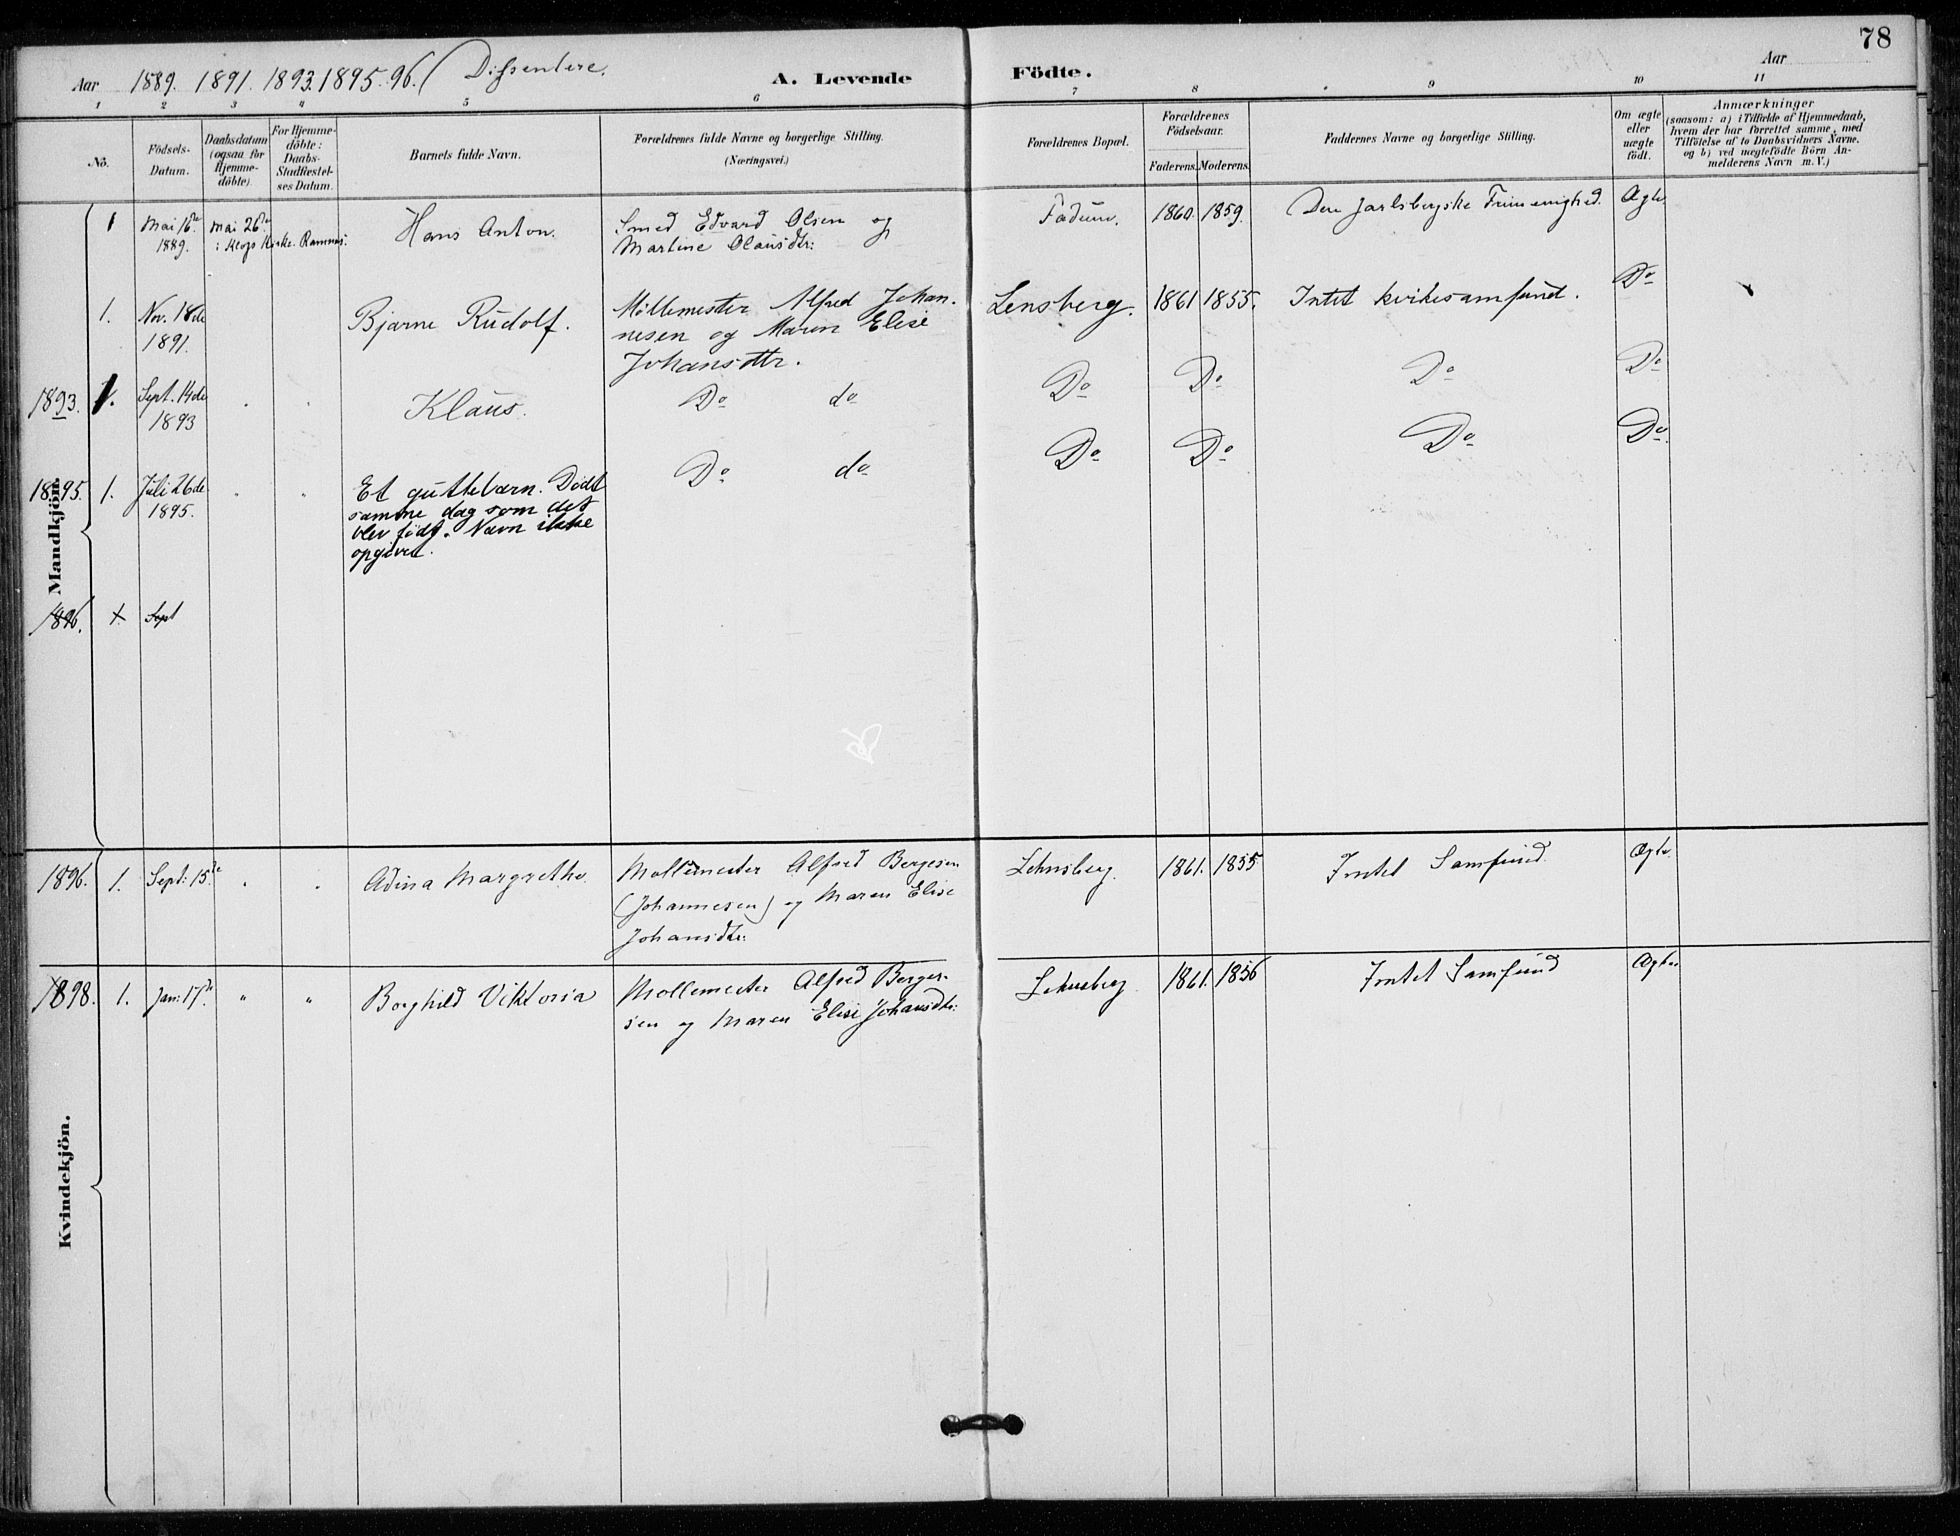 78
Aar 1889. 1891. 1893. 1895. 96. (Dissentere.
A. Levende Födte.
Aar
1 2 3 4 5 6 7 8 9 10 11
No.
Födsels-
Datum.
Daabsdatum
(ogsaa for
Hjemme-
döbte).
For Hjemme-
döbte:
Daabs-
Stadfæstel-
ses Datum.
Barnets fulde Navn.
Forældrenes fulde Navne og borgerlige Stilling.
(Næringsvei.)
Forældrenes Bopæl.
Forældrenes
Födselsaar.
Faderens. Moderens.
Faddernes Navne og borgerlige Stilling.
Om ægte
eller
uægte
födt.
Anmærkninger
(saasom: a) i Tilfælde af Hjemmedaab,
hvem der har forrettet samme, med
Tilföielse af to Daabsvidners Navne.
og b) ved uægtefödte Börn An-
melderens Navn m. V.)
Mandkjön.
1 Mai 16de 1889. Mai 26de Hans Anton. Smed Edvard Olsen og Fadum. 1860. 1859. Den Jarlsbergske Frimenighed. Ægte
: Klops Kirke. Ramnes. Martine Olausdtr:
1. Nov. 18de Bjarne Rudolf. Möllemester Alfred Johan- Lensberg. 1861 1855. Intet kirkesamfund. Do
1891. nesen og Maren Elise
Johansdtr.
1893. 1. Sept. 14de Klaus. Do do Do Do Do Do
1893
1895. 1. Juli 26de Et guttebarn. Dödt Do do Do Do Do Do
1895. samme dag som det
blev födt. Navn ikke
opgivet.
1896. + Sept
Kvindekjön.
1896. 1. Sept: 15de Adina Margrethe. Möllemester Alfred Bergesen Lehnsberg. 1861. 1855 Intet Samfund. Ægte
(Johannesen) og Maren Elise
Johansdtr:
1898. 1. Jan: 17de " " Borghild Viktoria Möllemester Alfred Berge- Lehnsberg 1861. 1856 Intet Samfund Ægte
sen og Maren Elise Johansdtr: